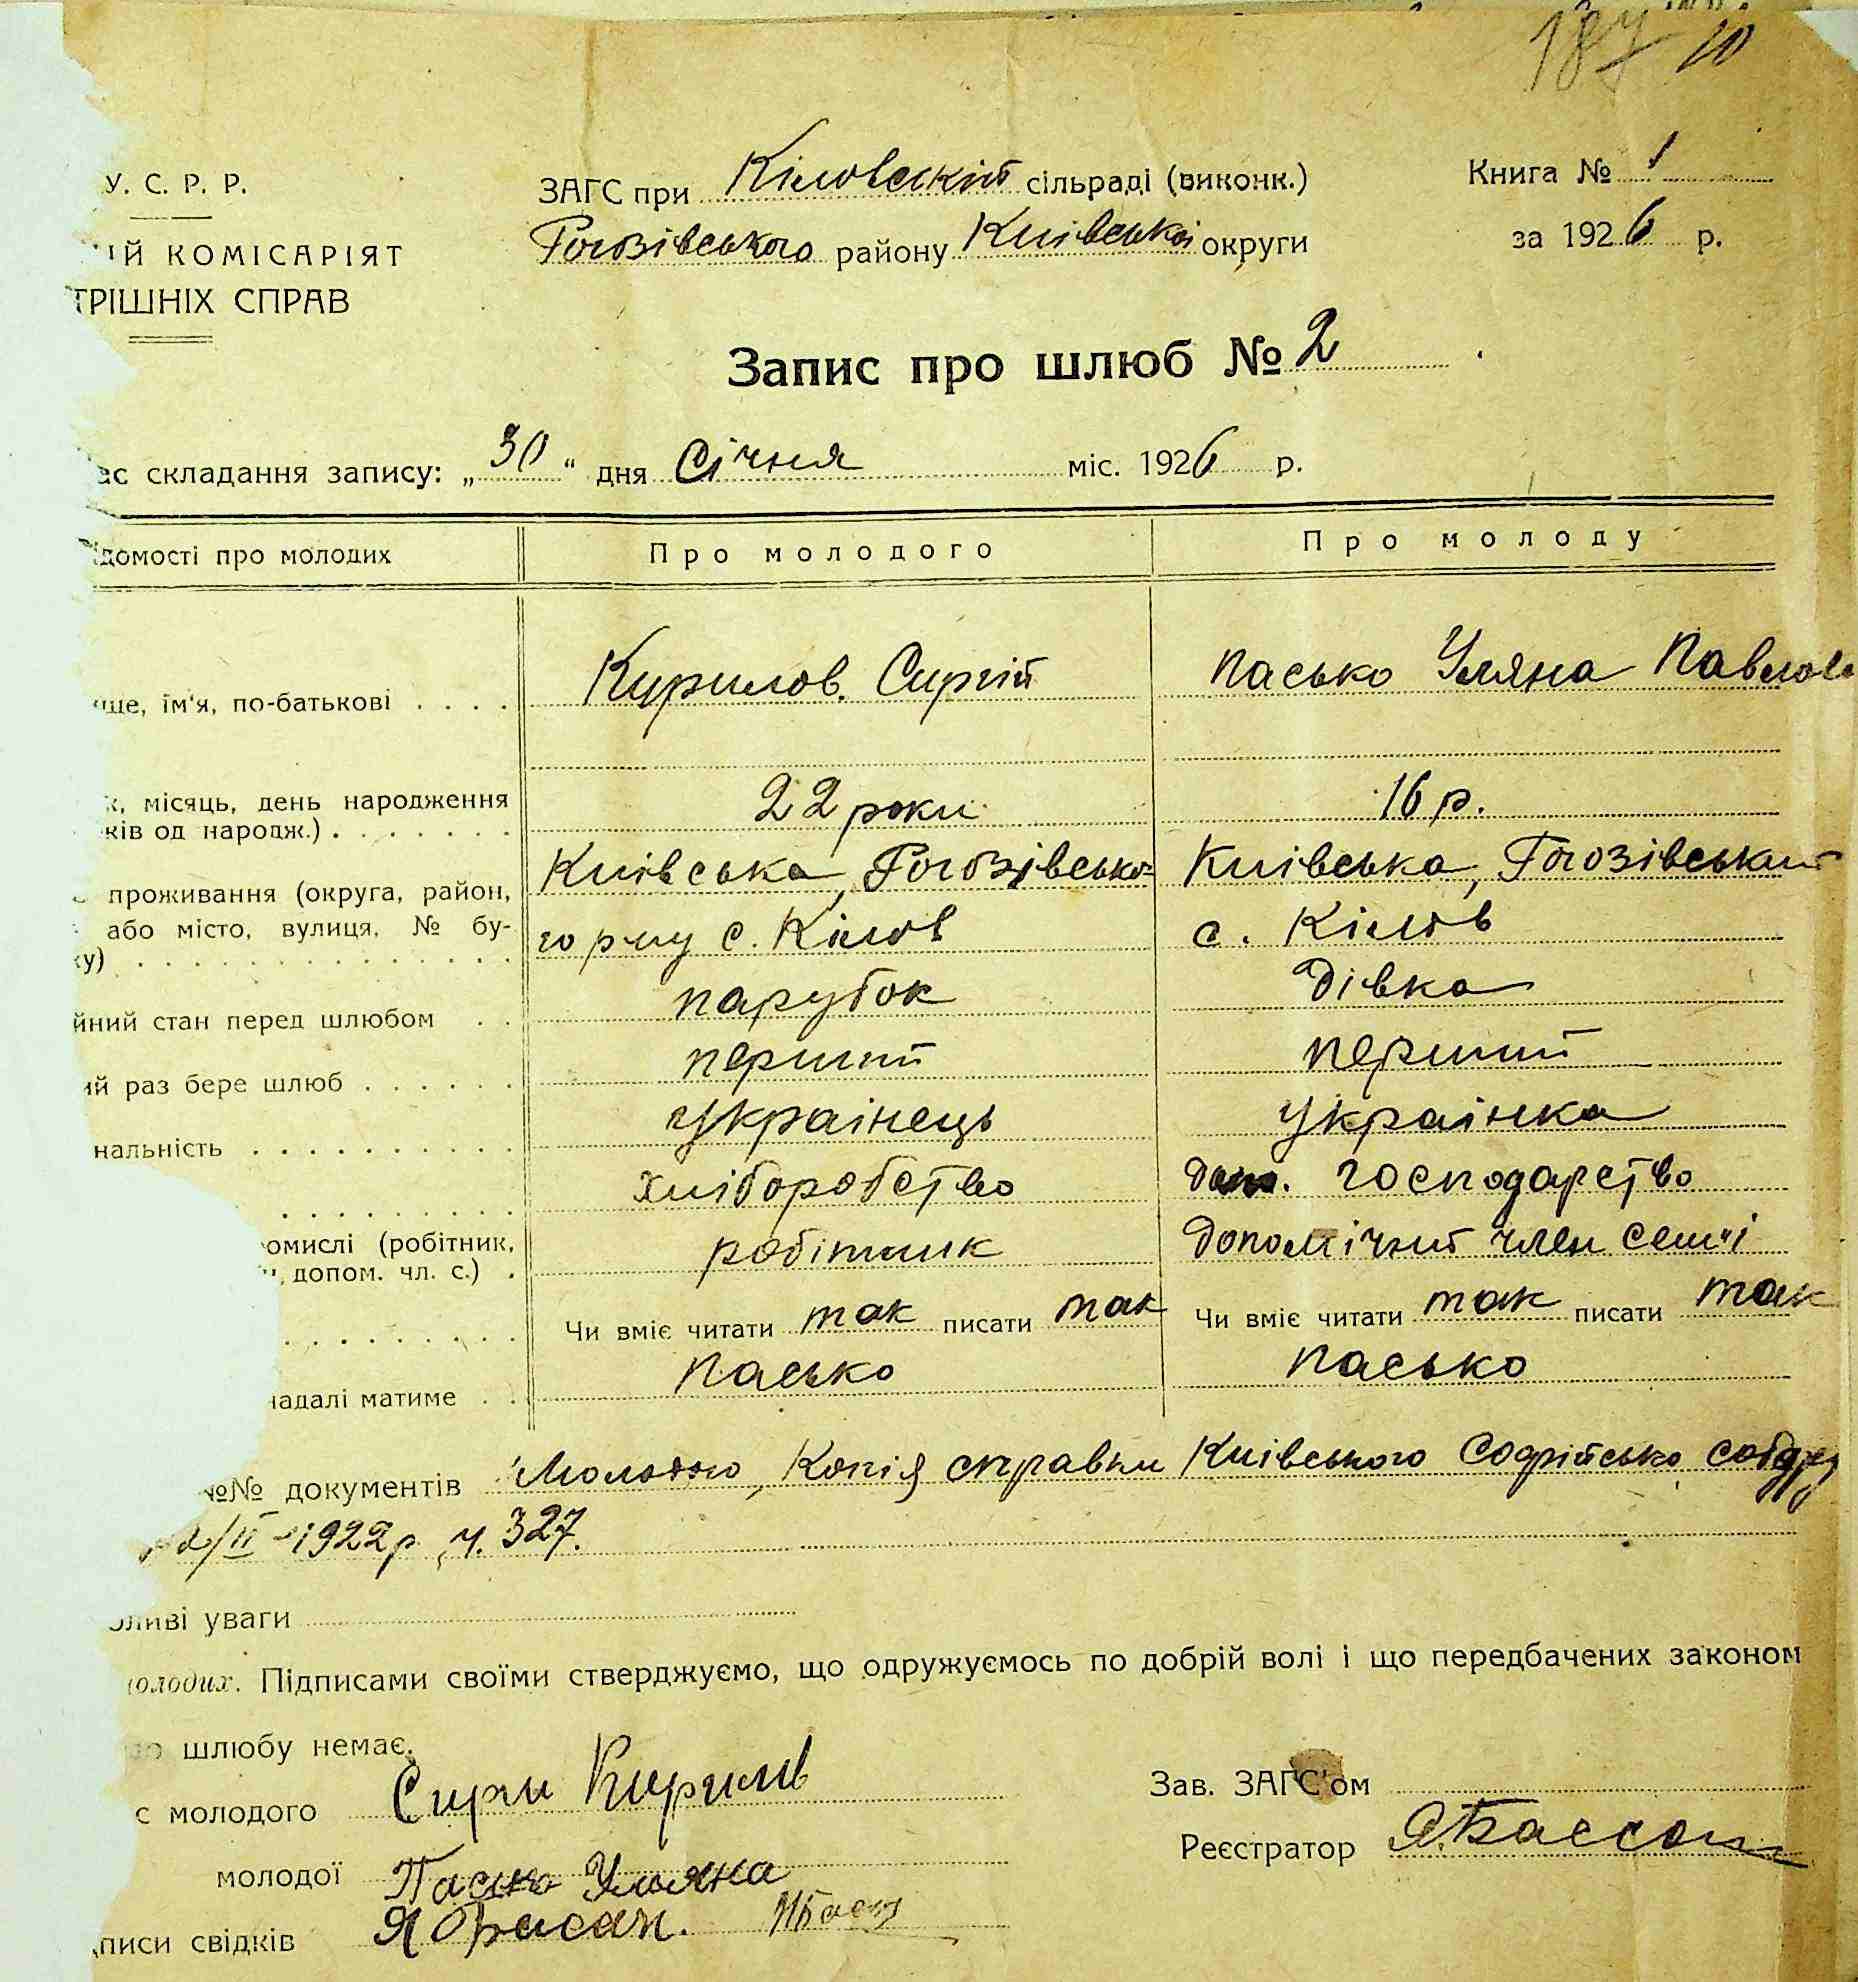 187 10
У. С. Р. Р.
ЗАГС при Кіловскій сільраді (виконк.)
Книга № 1
ИЙ КОМІСАРІЯТ
Гогозівського району Київської округи
за 1926 р.
ТРІШНІХ СПРАВ
Запис про шлюб № 2
ас складання запису: „30“ дня Січня міс. 1926 р.
ідомості про молодих
Про молодого
Про молоду
ище, ім'я, по-батькові . . . .
Курилов. Сиргій
Пасько Уляна Павлов
к, місяць, день народження
ків од народж.) . . . . . . .
22 роки
16 р.
проживання (округа, район,
або місто, вулиця, № бу-
ку) . . . . . . . . . . . . . .
Київська, Гогозівсько-
Київська, Гогозівський
го р-ну с. Кілов
с. Кілов
йний стан перед шлюбом . .
парубок
дівка
ий раз бере шлюб . . . . . .
перший
перший
нальність . . . . . . . . . .
українець
українка
хліборобство
дом. господарство
омислі (робітник,
, допом. чл. с.) .
робітник
допомічний член семьі
Чи вміє читати так писати так
Чи вміє читати так писати так
надалі матиме . .
Пасько
Пасько
№№ документів Молодого, Копія справки Київського
2/II-1922 р. ч. 327.
бливі уваги
олодих. Підписами своїми стверджуємо, що одружуємось по добрій волі і що передбачених законом
до шлюбу немає.
с молодого
Зав. ЗАГС'ом
молодої Пасько Уляна
Реєстратор
дписи свідків